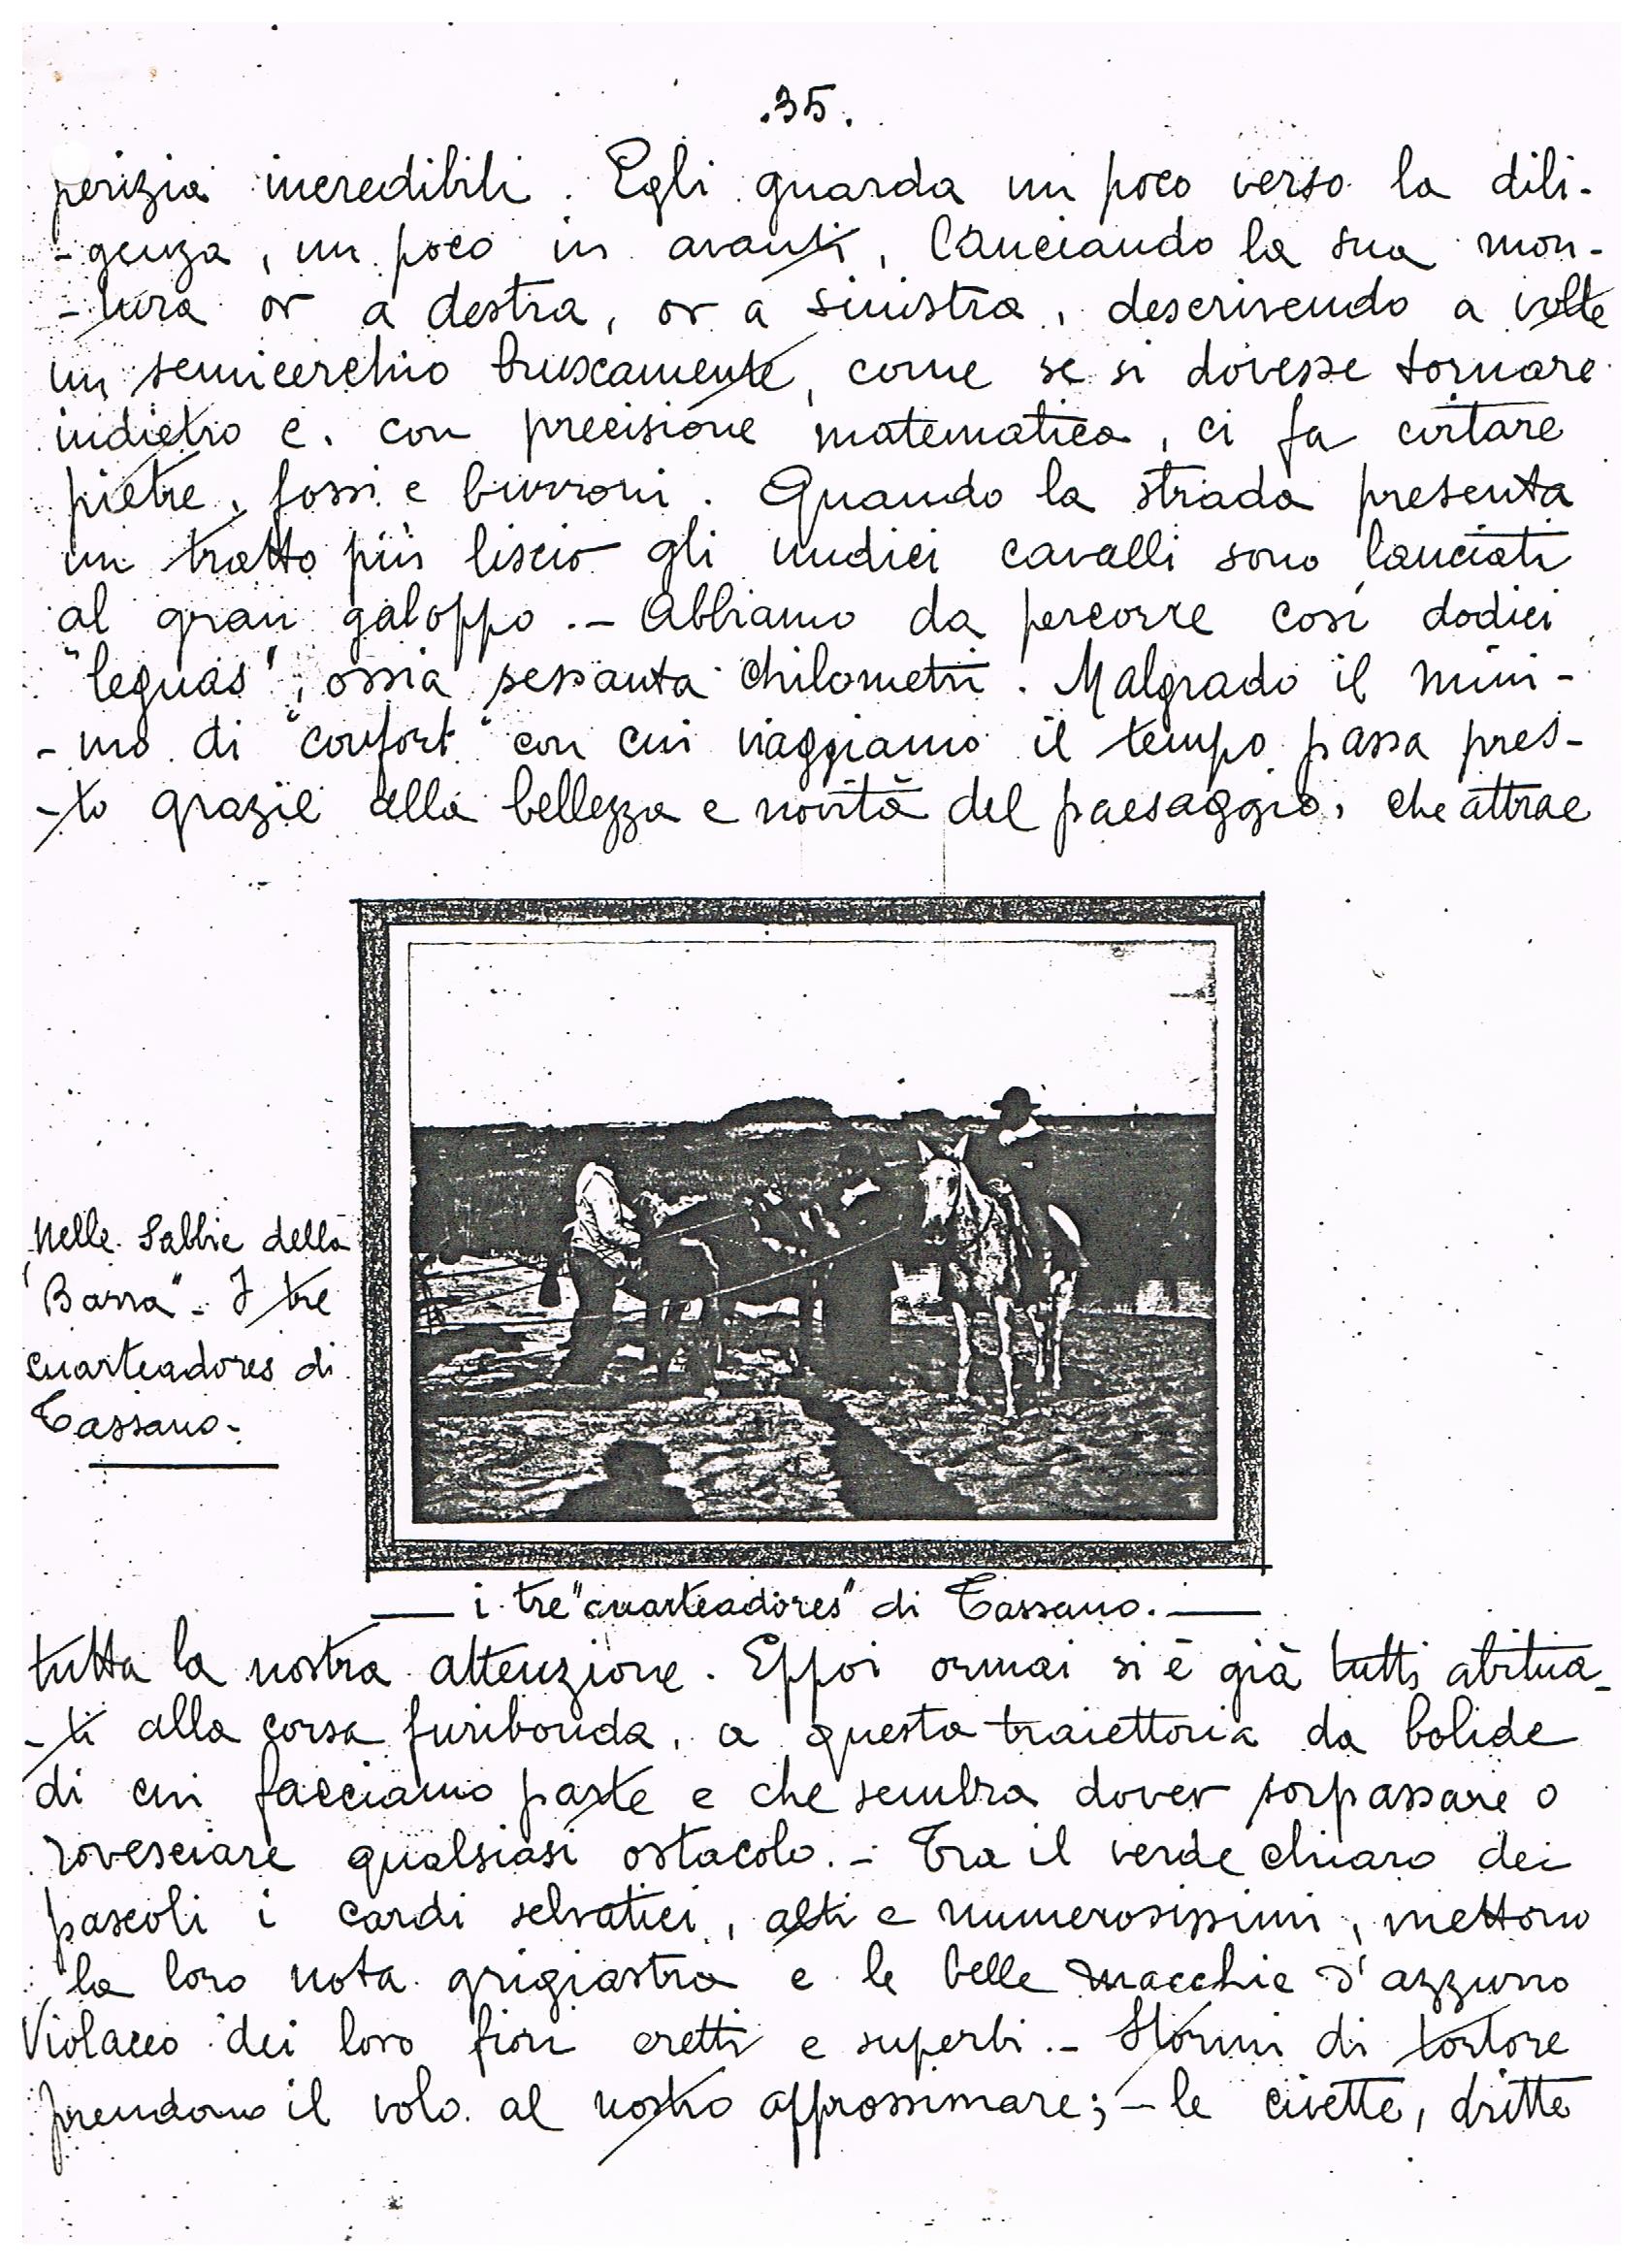 .35.
perizia incredibili. Egli guarda un poco verso la dili-
-genza, un poco in avanti, lanciando la sua mon-
-tura or a destra, or a sinistra, descrivendo a volte
un semicerchio bruscamente, come se si dovesse tornare
indietro e, con precisione matematica, ci fa evitare
pietre, fossi e burroni. Quando la strada presenta
un tratto più liscio gli undici cavalli sono lanciati
al gran galoppo.- Abbiamo da percorre così dodici
"leguas", ossia sessanta chilometri. Malgrado il mini-
-mo di "confort" con cui viaggiamo il tempo passa pres-
-to grazie alla bellezza e novità del paesaggio, che attrae
Nelle Sabbie della
"Barra"- I tre
cuarteadores di
Tassano-
i tre "cuarteadores" di Tassano.
tutta la nostra attenzione. Eppoi ormai si è già tutti abitua-
-ti alla corsa furibonda, a questa traiettoria da bolide
di cui facciamo parte e che sembra dover sorpassare o
rovesciare qualsiasi ostacolo.- Tra il verde chiaro dei
pascoli i cardi selvatici, alti e numerosissimi, mettono
la loro nota grigiastra e le belle macchie d'azzurro
violaceo dei loro fiori eretti e superbi.- Stormi di tortore
prendono il volo al nostro approssimare;- le civette, dritte